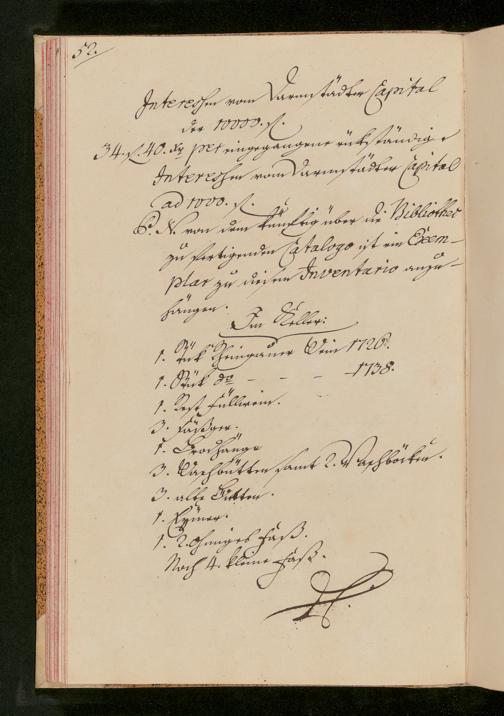 52.
Interessen vom Darmstädter Capital
der 10000. fl.
34. fl. 40. xr per eingegangene rückständige
Interessen vom Darmstädter Capital
ad 1000. fl.
P. N. von dem künftig über die Bibliothec
zu fertigenden Catalogo ist ein Exem-
plar zu diesem Inventario anzu-
hängen.
Im Keller:
1. Stük Rheingauer Wein 1726.
1. Stück do - - - 1738.
1. Rest Füllwein.
3. Fäßger.
1. Brodhänge
3. Waschbütten samt 2. Waschböcken.
3. alte Bütten.
1. Eymer.
1. 2. ohmiges Faß.
Noch 4. kleine Faß.